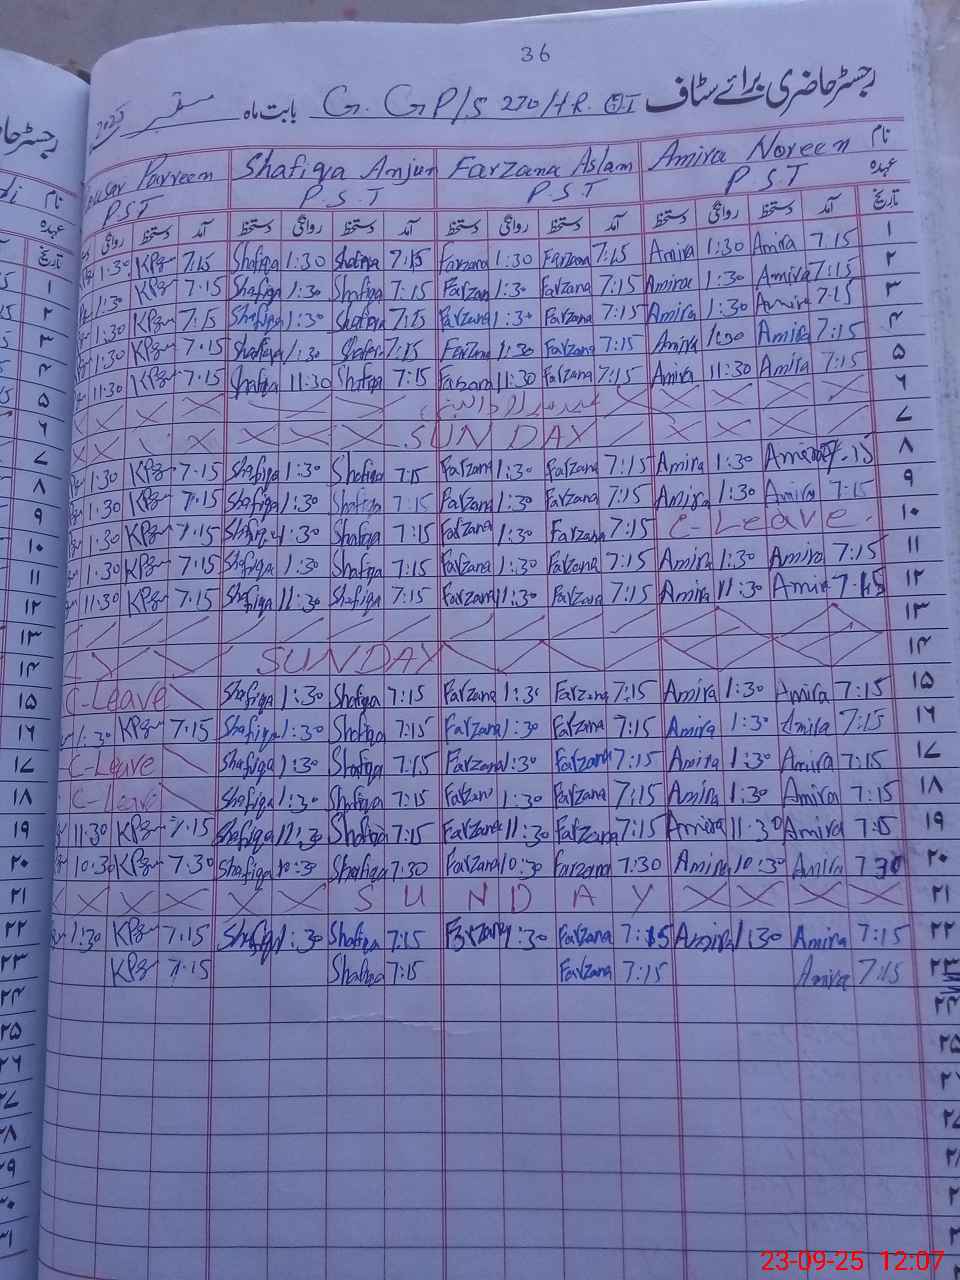 36
رجسٹر حاضری برائے سٹاف G. GP/S 270/HR. بابت ماہ ستمبر 2025
نام Amira Noreen Farzana Aslam Shafiqa Anjum Parveen
عہدہ P.S.T P.S.T P.S.T PST
تاریخ آمد دستخط روانگی دستخط آمد دستخط روانگی دستخط آمد دستخط روانگی دستخط آمد دستخط روانگی
۱ 7:15 Amira 1:30 Amira 7:15 Farzana 1:30 Farzana 7:15 Shafiqa 1:30 Shafiqa 7:15 1:30
۲ 7:15 Amira 1:30 Amira 7:15 Farzana 1:30 Farzana 7:15 Shafiqa 1:30 Shafiqa 7:15 1:30
۳ 7:15 Amira 1:30 Amira 7:15 Farzana 1:30 Farzana 7:15 Shafiqa 1:30 Shafiqa 7:15 1:30
۴ 7:15 Amira 1:30 Amira 7:15 Farzana 1:30 Farzana 7:15 Shafiqa 1:30 Shafiqa 7:15 1:30
۵ 7:15 Amira 11:30 Amira 7:15 Farzana 11:30 Farzana 7:15 Shafiqa 11:30 Shafiqa 7:15 11:30
۶
۷ SUNDAY
۸ 7:15 Amira 1:30 Amira 7:15 Farzana 1:30 Farzana 7:15 Shafiqa 1:30 Shafiqa 7:15 1:30
۹ 7:15 Amira 1:30 Amira 7:15 Farzana 1:30 Farzana 7:15 Shafiqa 1:30 Shafiqa 7:15 1:30
۱۰ C-Leave 7:15 Farzana 1:30 Farzana 7:15 Shafiqa 1:30 Shafiqa 7:15 1:30
۱۱ 7:15 Amira 1:30 Amira 7:15 Farzana 1:30 Farzana 7:15 Shafiqa 1:30 Shafiqa 7:15 1:30
۱۲ 7:15 Amira 11:30 Amira 7:15 Farzana 11:30 Farzana 7:15 Shafiqa 11:30 Shafiqa 7:15 11:30
۱۳
۱۴ SUNDAY
۱۵ 7:15 Amira 1:30 Amira 7:15 Farzana 1:30 Farzana 7:15 Shafiqa 1:30 Shafiqa C-Leave
۱۶ 7:15 Amira 1:30 Amira 7:15 Farzana 1:30 Farzana 7:15 Shafiqa 1:30 Shafiqa 7:15 1:30
۱۷ 7:15 Amira 1:30 Amira 7:15 Farzana 1:30 Farzana 7:15 Shafiqa 1:30 Shafiqa C-Leave
۱۸ 7:15 Amira 1:30 Amira 7:15 Farzana 1:30 Farzana 7:15 Shafiqa 1:30 Shafiqa C-Leave
۱۹ 7:15 Amira 11:30 Amira 7:15 Farzana 11:30 Farzana 7:15 Shafiqa 11:30 Shafiqa 7:15 11:30
۲۰ 7:30 Amira 10:30 Amira 7:30 Farzana 10:30 Farzana 7:30 Shafiqa 10:30 Shafiqa 7:30 10:30
۲۱ SUNDAY
۲۲ 7:15 Amira 1:30 Amira 7:15 Farzana 1:30 Farzana 7:15 Shafiqa 1:30 Shafiqa 7:15 1:30
۲۳ 7:15 Amira 7:15 Farzana 7:15 Shafiqa 7:15
۲۴
۲۵
23-09-25 12:07